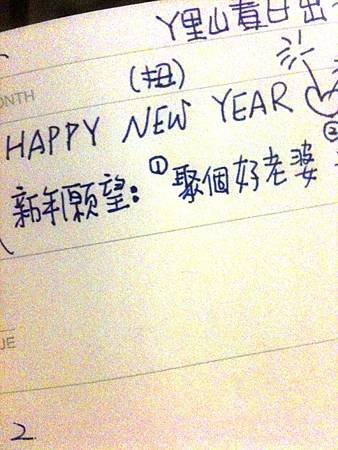 ㄚ里山責日出
ONTH
(扭)
HAPPY NEW YEAR
新年願望:①聚個好老婆 ②
UE
2.